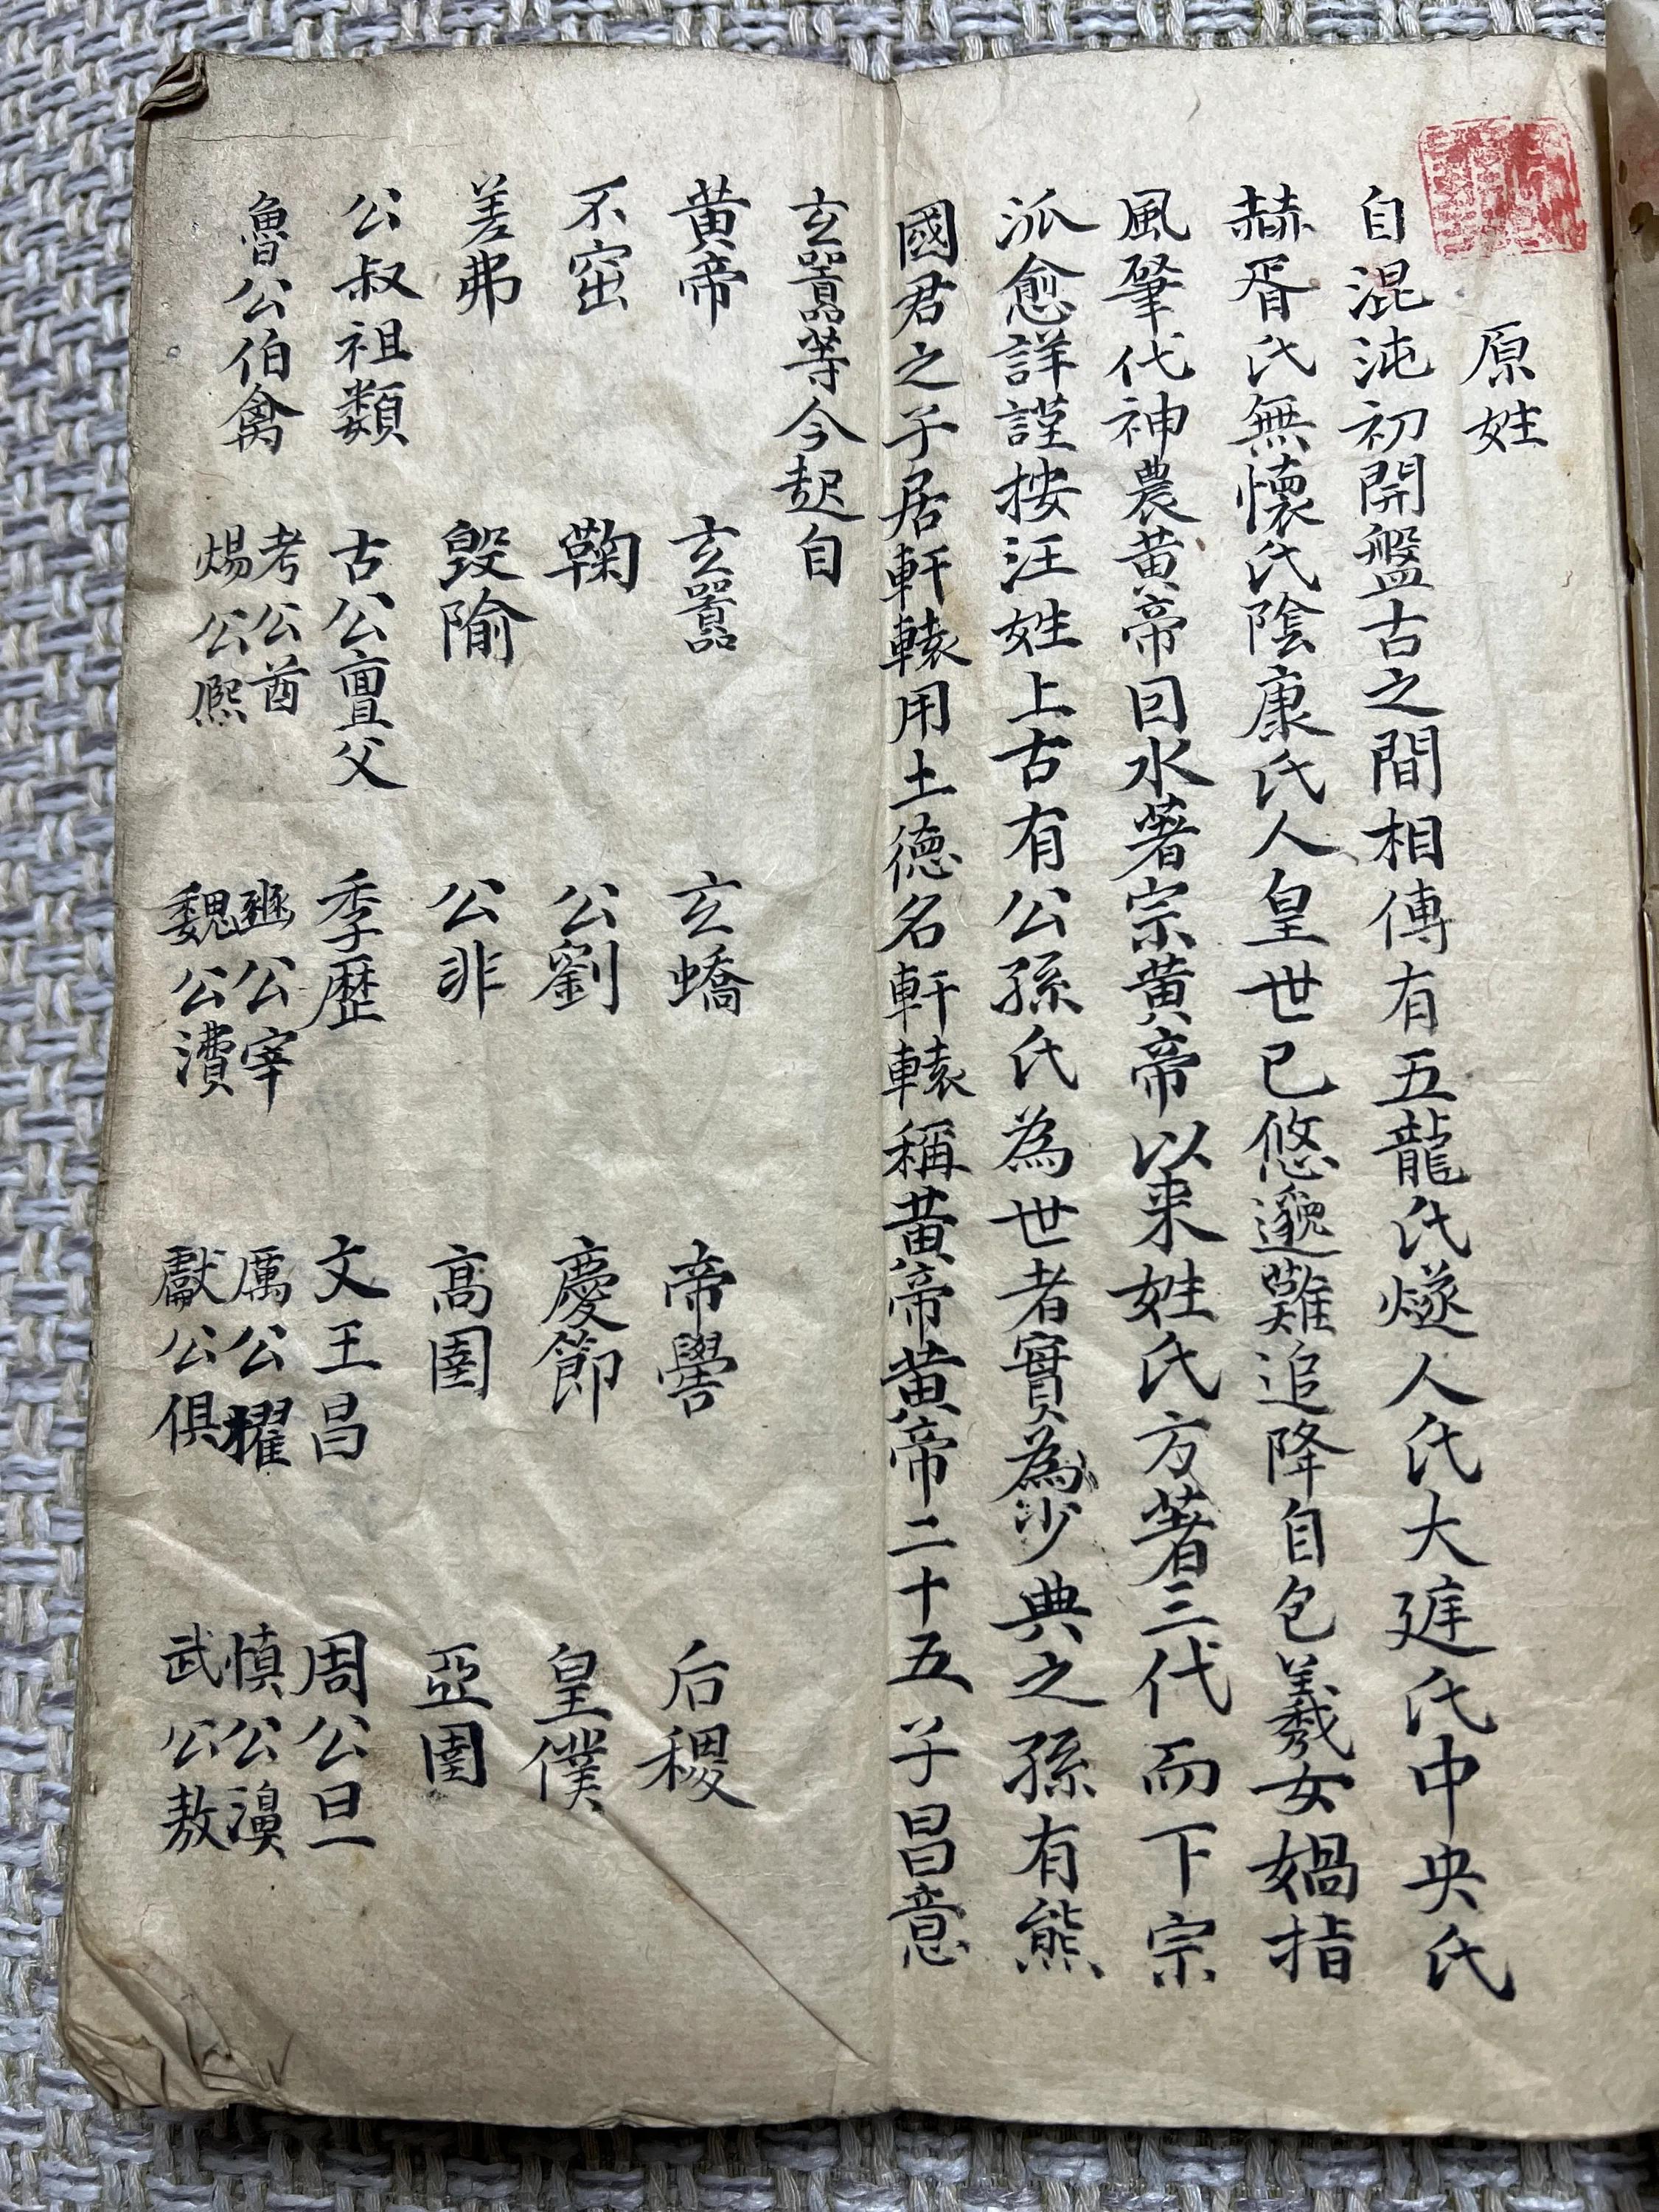 原姓
自混沌初開盤古之間相傳有五龍氏燧人氏大庭氏中央氏
赫胥氏無懷氏陰康氏人皇世已悠邈難追降自包羲女媧指
風肇代神農黃帝回水著宗黃帝以来姓氏方著三代而下宗
派愈詳謹按汪姓上古有公孫氏為世者實為少典之孫有熊
國君之子居軒轅用土德名軒轅稱黃帝黃帝二十五子昌意
玄囂等今起自
黃帝 玄囂 玄蟜 帝嚳 后稷
不窋 鞠 公劉 慶節 皇僕
差弗 毀隃 公非 高圉 亞圉
公叔祖類 古公亶父 季歷 文王昌 周公旦
魯公伯禽 考公酋 幽公宰 厲公擢 慎公濞
煬公熙 魏公㵒 獻公俱 武公敖